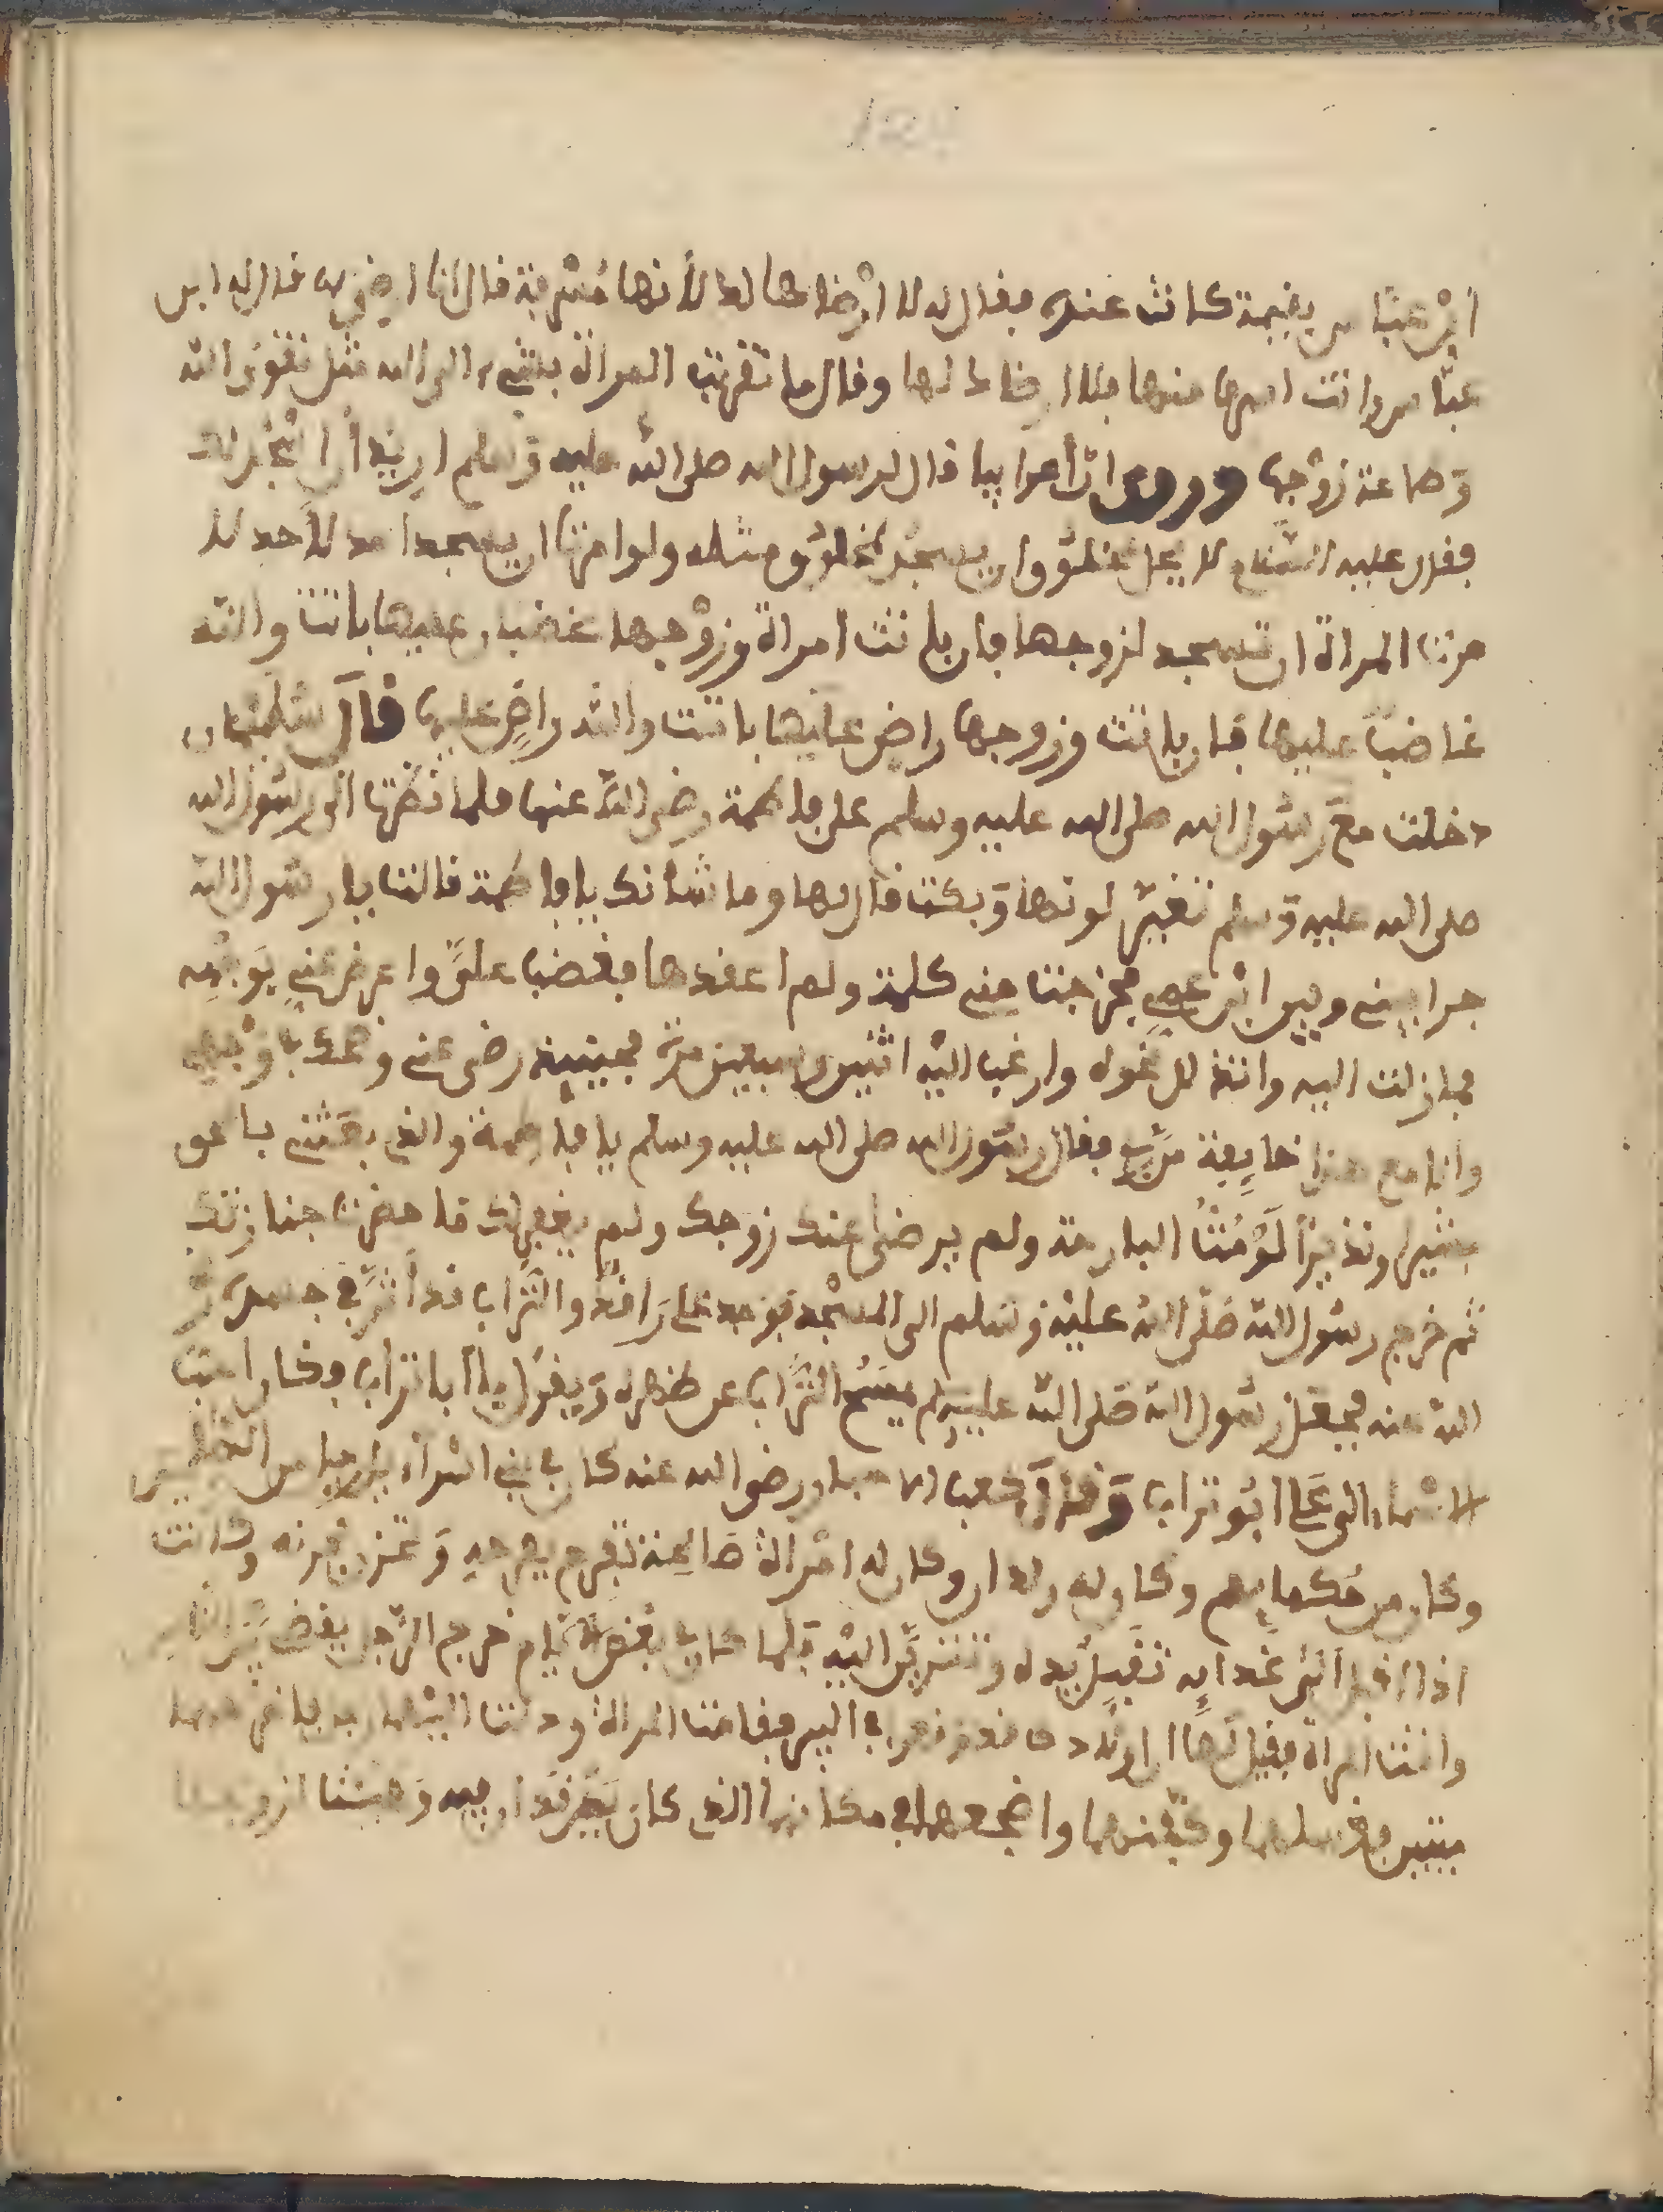 ابن عباس يتيمة كانت عنده فقال له لا ارضاها لك لأنها مشرفة قال انا ارضى به فقال له ابن
عباس وانت اسرها منها فلا ارضاك لها وقال ما تقربت المرأة بشيء الى الله مثل تقوى الله
وطاعة زوجها وروى ان أعرابيا قال لرسول الله صلى الله عليه وسلم اريد أن اسجد لك
فقال عليه السلام لا يحل لمخلوق ان يسجد لمخلوق مثله ولو امرت ان يسجد احد لأحد لا
مرت المرأة ان تسجد لزوجها فإن باتت امرأة وزوجها غضبان عليها باتت والله
غاضبا عليها فإن باتت وزوجها راض عليها باتت والله راض عليها قال سلمان
دخلت مع رسول الله صلى الله عليه وسلم على فاطمة رضي الله عنها فلما نظرت الى رسول الله
صلى الله عليه وسلم تغير لونها وبكت فقال لها وما شأنك يا فاطمة قالت يا رسول الله
جرا بيني وبين ابن عمي فخرجت مني كلمة ولم اعقدها فغضب علي واعرض عني بوجهه
فما زلت اليه وانتقل حوله وارغب اليه اثنين وسبعين مرة فحينئذ رضي عني وضحك في وجهي
وانا مع هذا خائفة من ربي فقال رسول الله صلى الله عليه وسلم يا فاطمة والذي بعثني بالحق
بشيرا ونذيرا لو مت البارحة ولم يرض عنك زوجك ولم يغفر لك ما حضرت جنازتك
ثم خرج رسول الله صلى الله عليه وسلم الى المسجد فوجد علي راقد والتراب قد أثر في جسده رضي
الله عنه فجعل رسول الله صلى الله عليه وسلم يمسح التراب عن ظهره ويقول يا أبا تراب وكان احب
الاسماء الى علي ابو تراب وقال كعب الاحبار رضي الله عنه كان في بني اسرائيل رجلا من الصالحين
وكان من حكمايهم وكان له ولدان وكان له امرأة صالحة تفرح بفرحه وتحزن بحزنه وكانت
اذا اقبل أتى غدايه تقبل يده وتتزين اليه فلما كان بعض الأيام خرج الرجل
واتت امرأة فقيل لها ان اولادك قد وقعوا في البير فقامت المرأة ودلت
ميتين فغسلتهما وكفنتهما واضجعتهما في مكانهما الذي كان يرقدان فيه وهيئت لزوجها